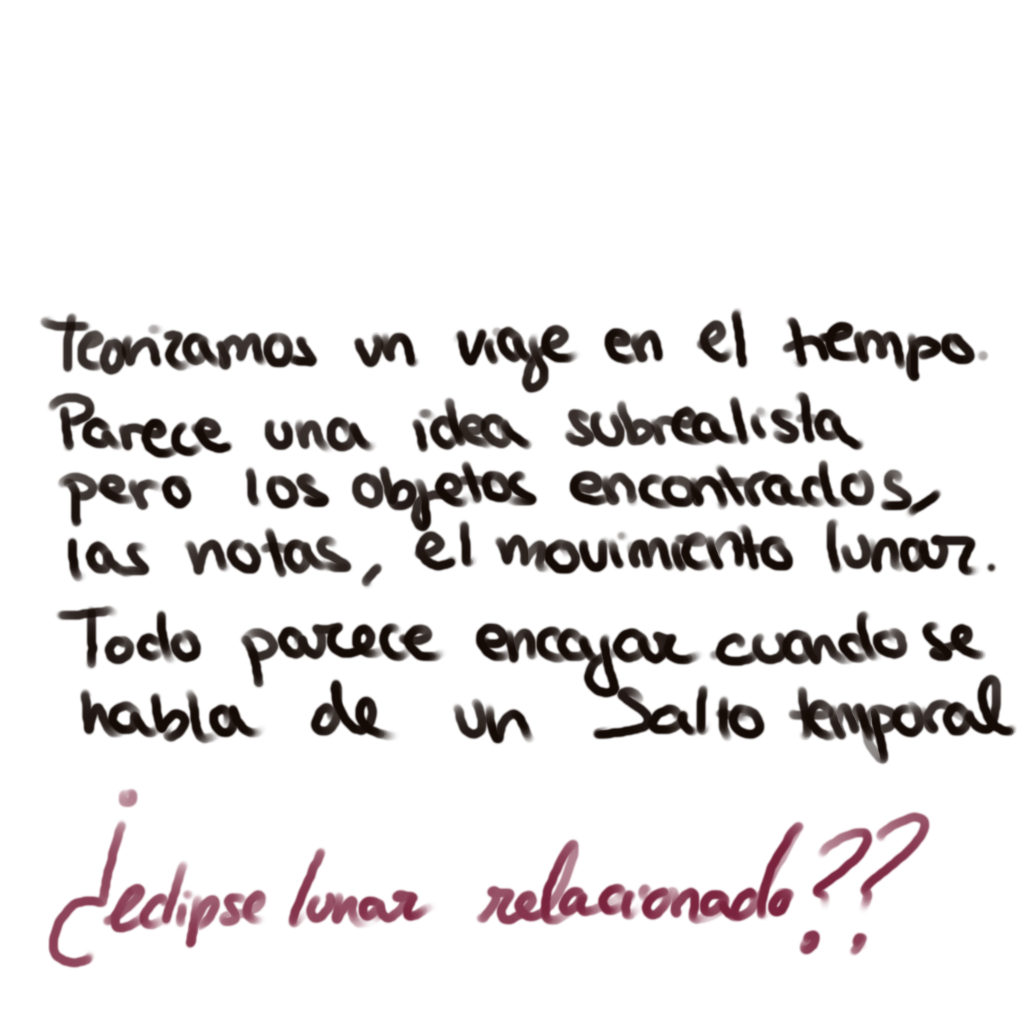 Teorizamos un viaje en el tiempo.
Parece una idea subrealista
pero los objetos encontrados,
las notas, el movimiento lunar.
Todo parece encajar cuando se
habla de un Salto temporal
¿eclipse lunar relacionado??